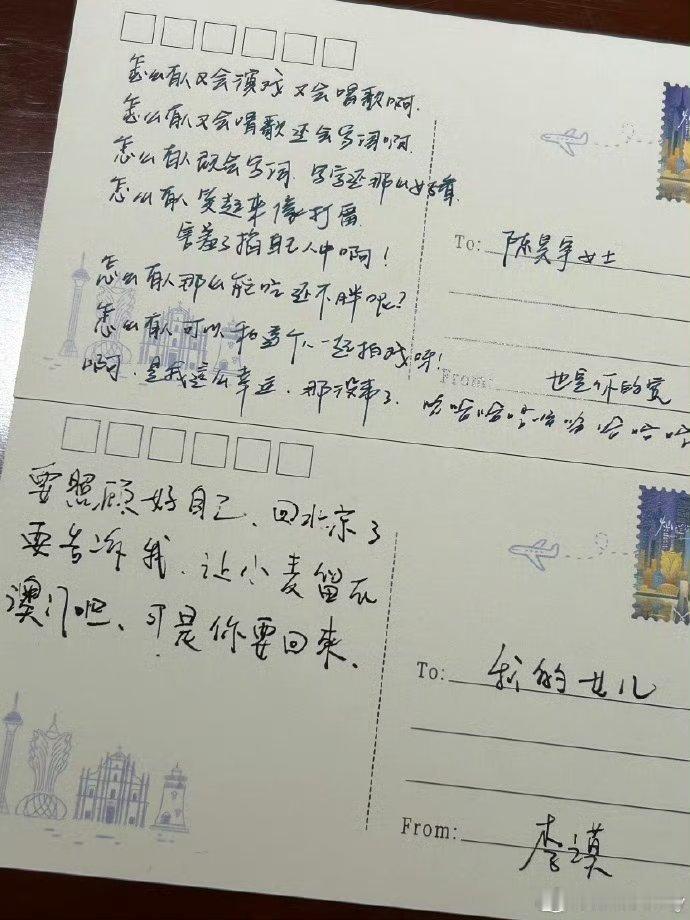 怎么有人又会演戏又会唱歌啊.
怎么有人又会唱歌还会写词啊.
怎么有人既会写词.写字还那么好看.
怎么有人笑起来像打雷
害羞了掐自己人中啊！
怎么有人那么能吃还不胖呢？
怎么有人可以和这个人一起拍戏呀！
啊.是我这么幸运.那没事了.哈哈哈哈哈哈哈哈哈
To: 陈昊宇女士
From: 也是你的宽
要照顾好自己、回北京了
要告诉我.让小麦留在
澳门吧、可是你要回来.
To: 我的女儿
From: 李漠